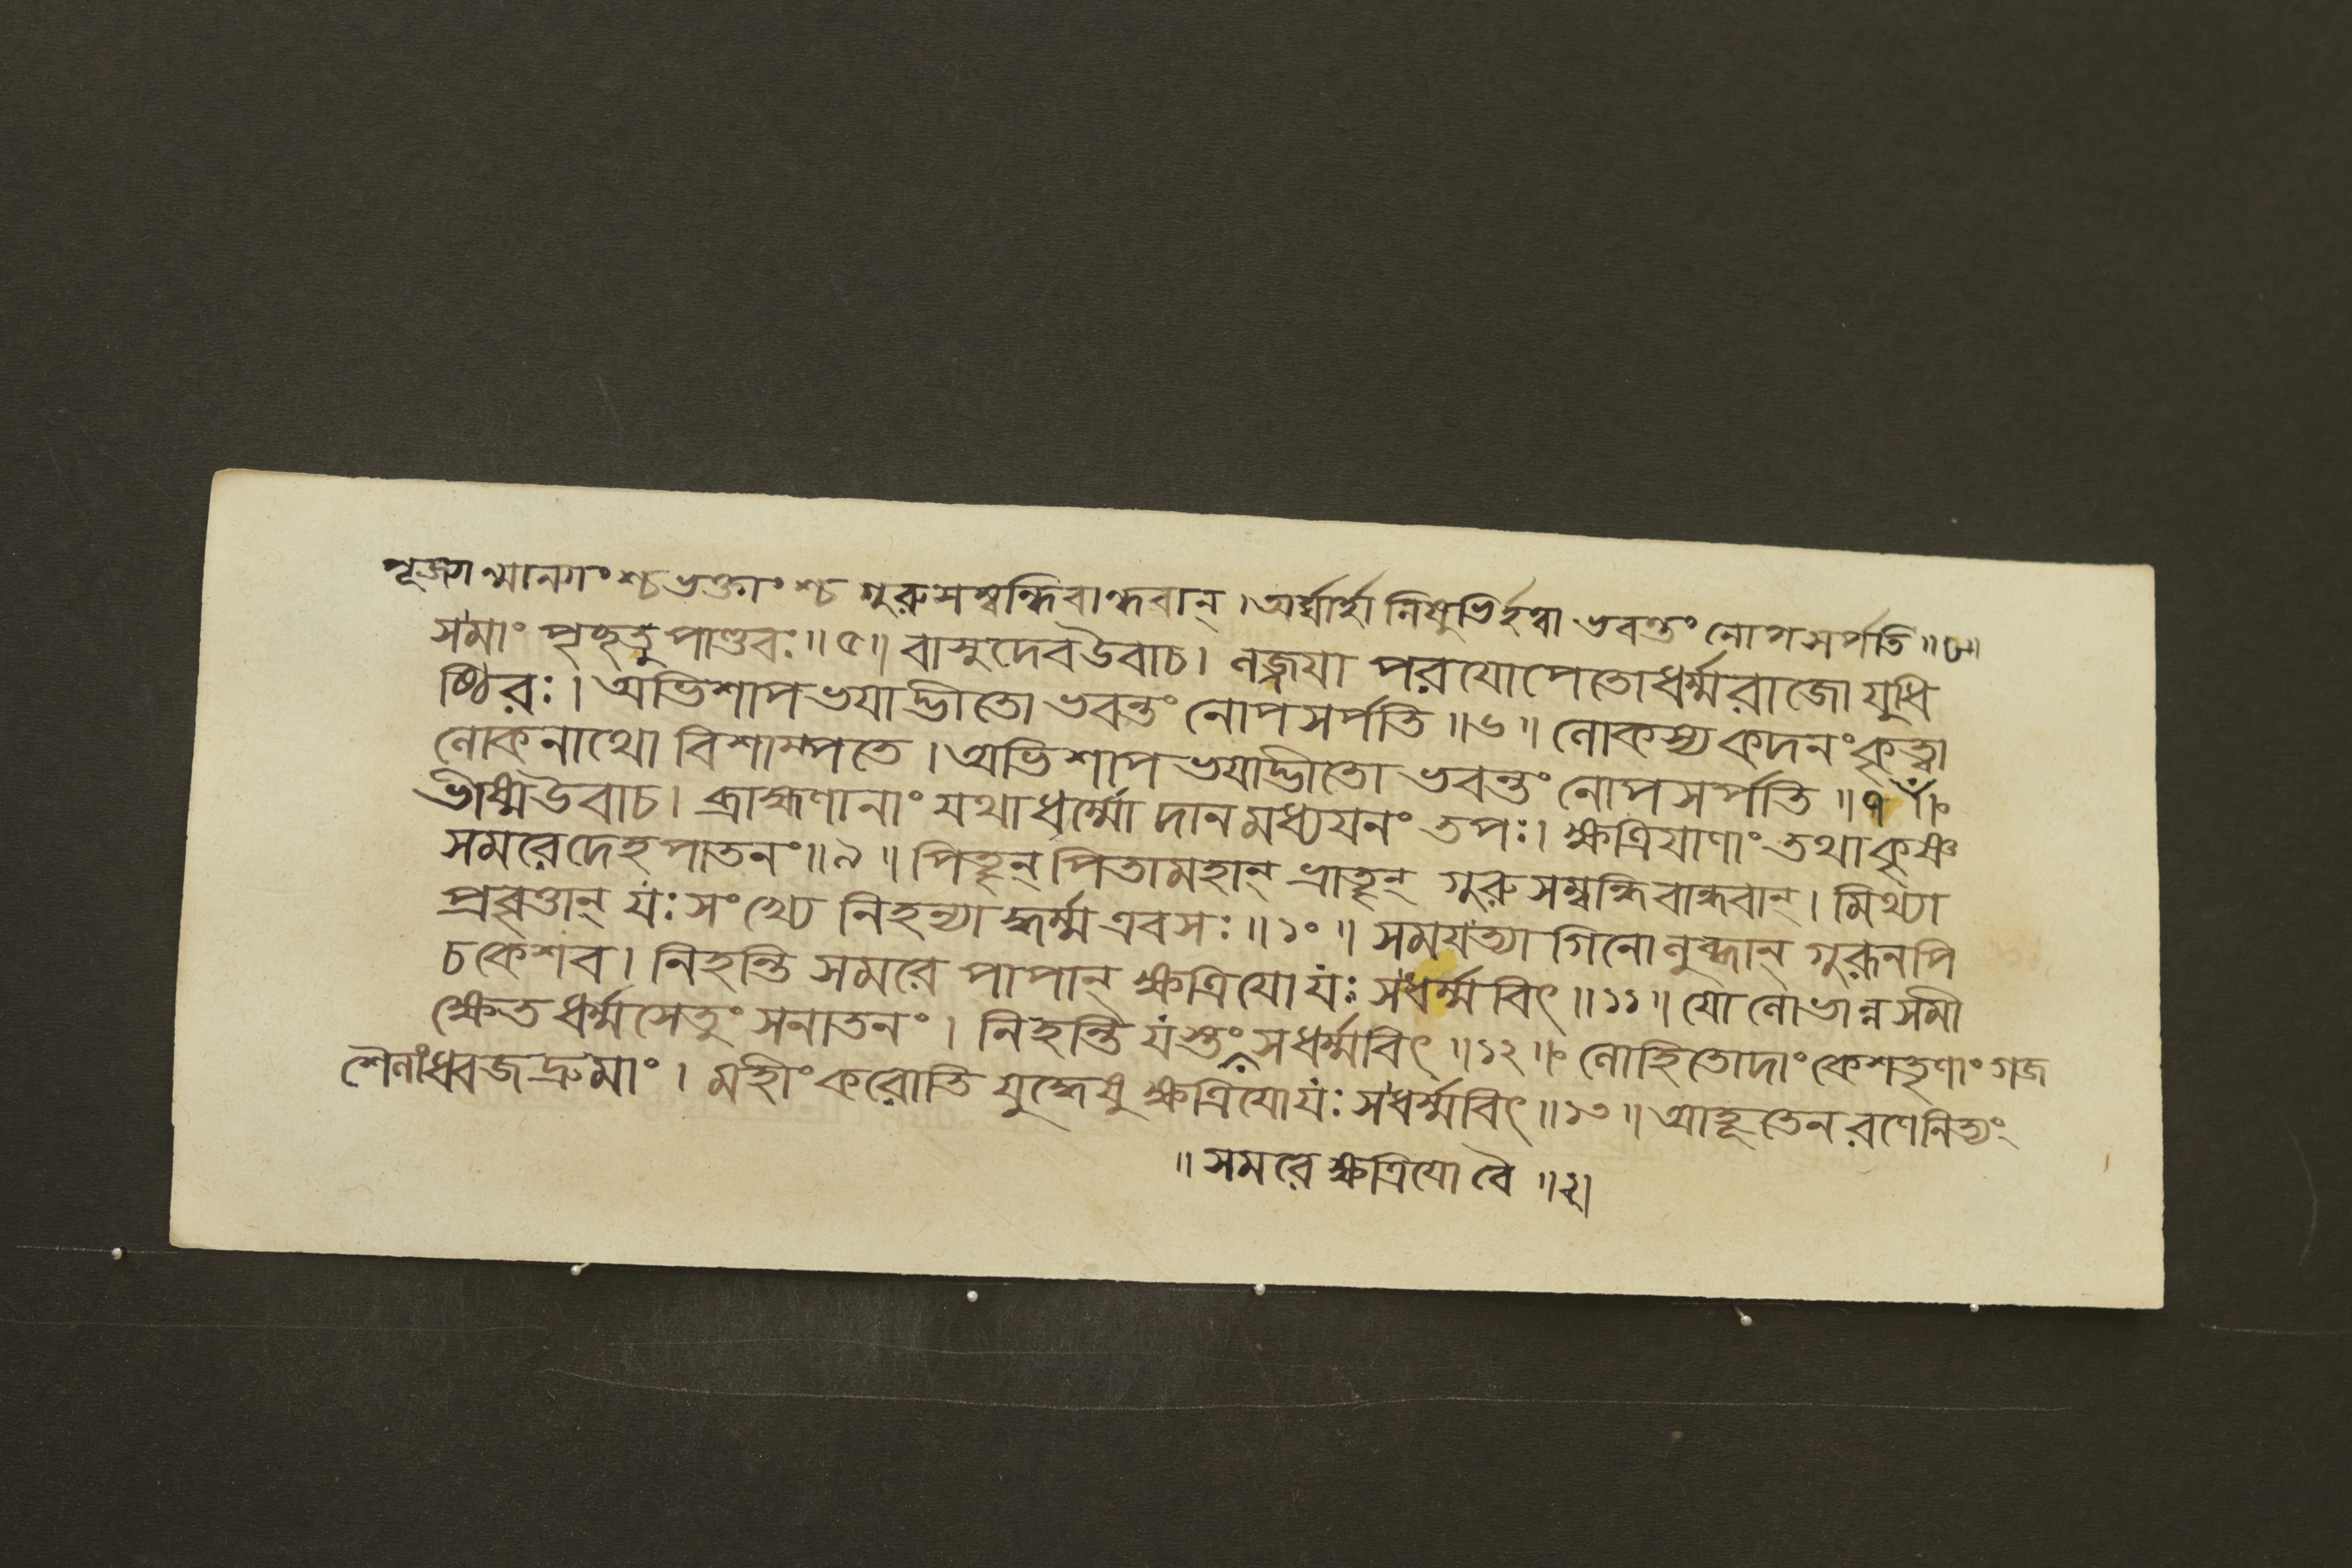 পূজ্যান্মান্যাংশ্চভক্তাংশ্চ গুরুসম্বন্ধিবান্ধবান্ । অর্ঘ্যার্হানিষুভির্হত্বা ভবন্তং নোপসর্পতি ॥৮॥
সমাং পৃচ্ছতু পাণ্ডবঃ ॥৫॥ বাসুদেবউবাচ । লজ্জযা পরযোপেতোধর্ম্মরাজো যুধি
ষ্ঠিরঃ । অভিশাপভযাদ্ভীতো ভবন্তং নোপসর্পতি ॥৬॥ লোকস্যকদনংকৃত্বা
লোকনাথো বিশাম্পতে । অভিশাপভযাদ্ভীতো ভবন্তং নোপসর্পতি ॥৭॥
ভীষ্মউবাচ । ব্রাহ্মণানাং যথাধর্ম্মো দানমধ্যযনং তপঃ । ক্ষত্রিযাণাং তথাকৃষ্ণ
সমরেদেহপাতনং ॥৯॥ পিতৄন্ পিতামহান্ ভ্রাতৄন্ গুরুসম্বন্ধিবান্ধবান্ । মিথ্যা
প্রবৃত্তান্ যঃসংখ্যে নিহন্যাদ্ধর্ম্মএবসঃ ॥১০॥ সমযত্যাগিনোলুব্ধান্ গুরূনপি
চকেশব । নিহন্তি সমরে পাপান্ ক্ষত্রিযোযঃ সধর্ম্মবিৎ ॥১১॥ যোলোভান্নসমী
ক্ষেতধর্ম্মসেতুংসনাতনং । নিহন্তি যস্তং সধর্ম্মবিৎ ॥১২॥ লোহিতোদাং কেশতৃণাং গজ
শৈলাংধ্বজদ্রুমাং । মহীংকরোতি যুদ্ধেষু ক্ষত্রিযোযঃ সধর্ম্মবিৎ ॥১৩॥ আহূতেনরণেনিত্যং
॥ সমরে ক্ষত্রিযো বৈ ॥২॥